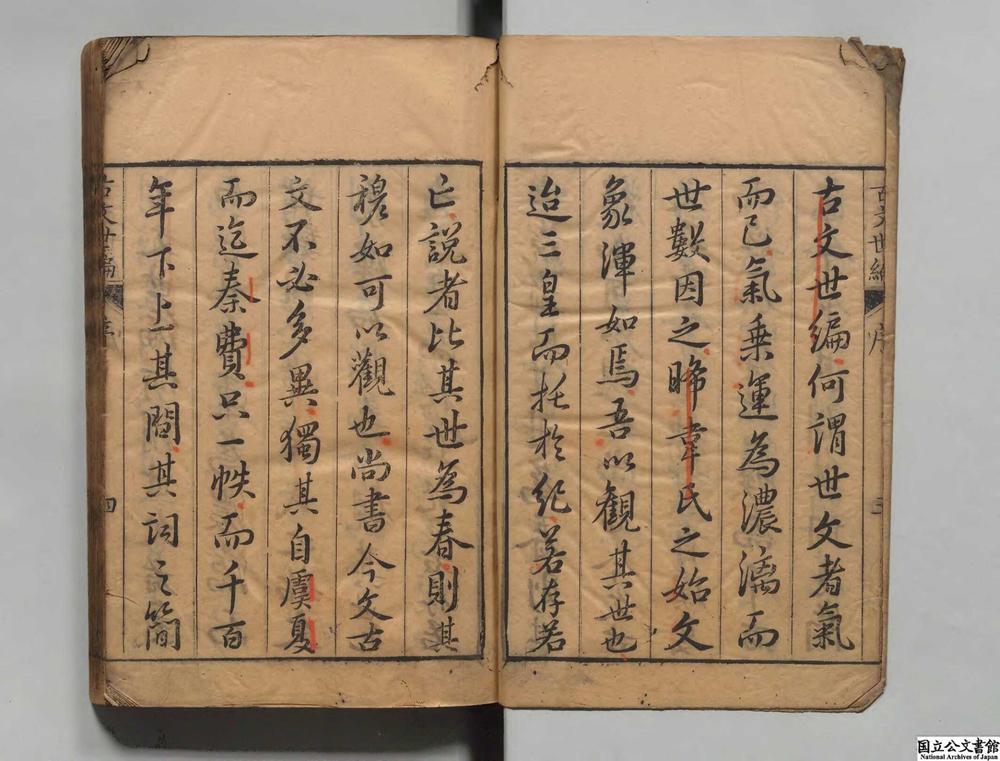 古文世編何謂世文者氣
而已氣乗運為濃漓而
世數因之晞韋氏之始文
象渾如焉吾以觀其世也
迨三皇而托於紀若存若
亡說者比其世為春則其
穆如可以觀也尚書今文古
文不必多異獨其自虞夏
而迄秦費只一帙而千百
年下上其間其詞之簡
古文世編
序
三
古文世編
序
四
国立公文書館
National Archives of Japan